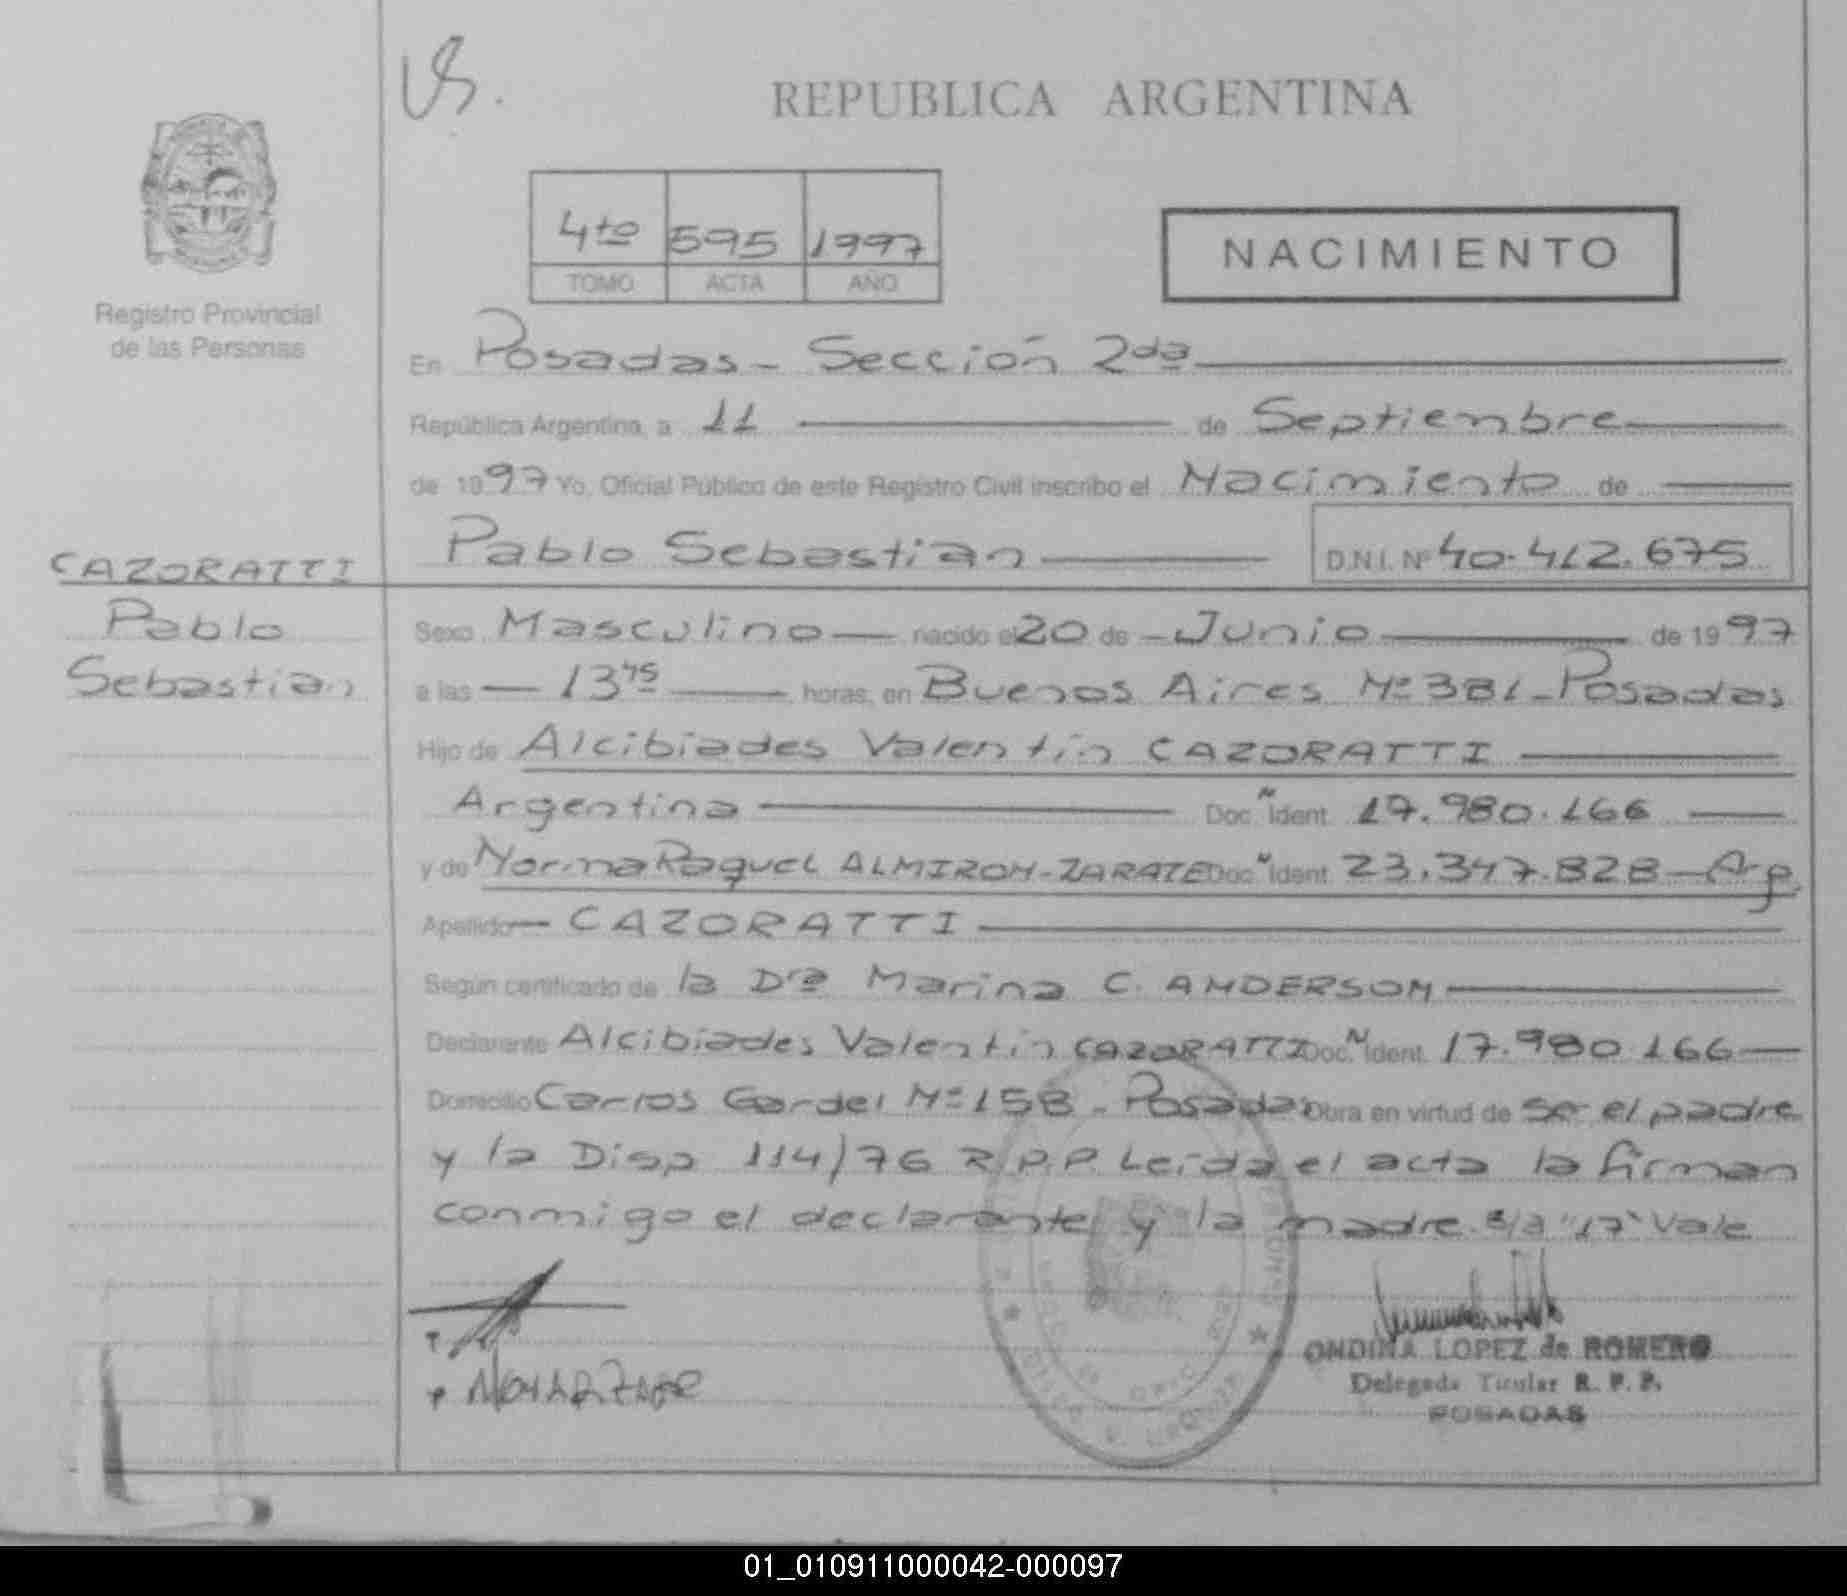 VS.
REPUBLICA ARGENTINA
4to 595 1997
TOMO ACTA AÑO
NACIMIENTO
Registro Provincial
de las Personas
En Posadas - Sección 2da
República Argentina, a 11 de Septiembre
de 1997 Yo, Oficial Público de este Registro Civil inscribo el Nacimiento de
Pablo Sebastián D.N.I. Nº 40.412.675
CAZORATTI
Pablo
Sebastián
Sexo Masculino nacido el 20 de Junio de 1997
a las 13 45 horas, en Buenos Aires Nº 381 - Posadas
Hijo de Alcibiades Valentín CAZORATTI
Argentina Doc. N Ident. 17.980.166
y de Norma Raquel ALMIRON-ZARATE Doc. N Ident. 23.347.828 - Arg.
Apellido CAZORATTI
Según certificado de la Dra Marina C. ANDERSON
Declarante Alcibiades Valentín CAZORATTI Doc. N Ident. 17.980.166
Domicilio Carlos Gardel Nº 158 - Posadas Obra en virtud de ser el padre
y la Disp 114/76 R.P.P. Leída el acta la firman
conmigo el declarante y la madre. S/a "17" Vale
ONDINA LOPEZ de ROMERO
Delegada Titular R. P. P.
POSADAS
01_010911000042-000097